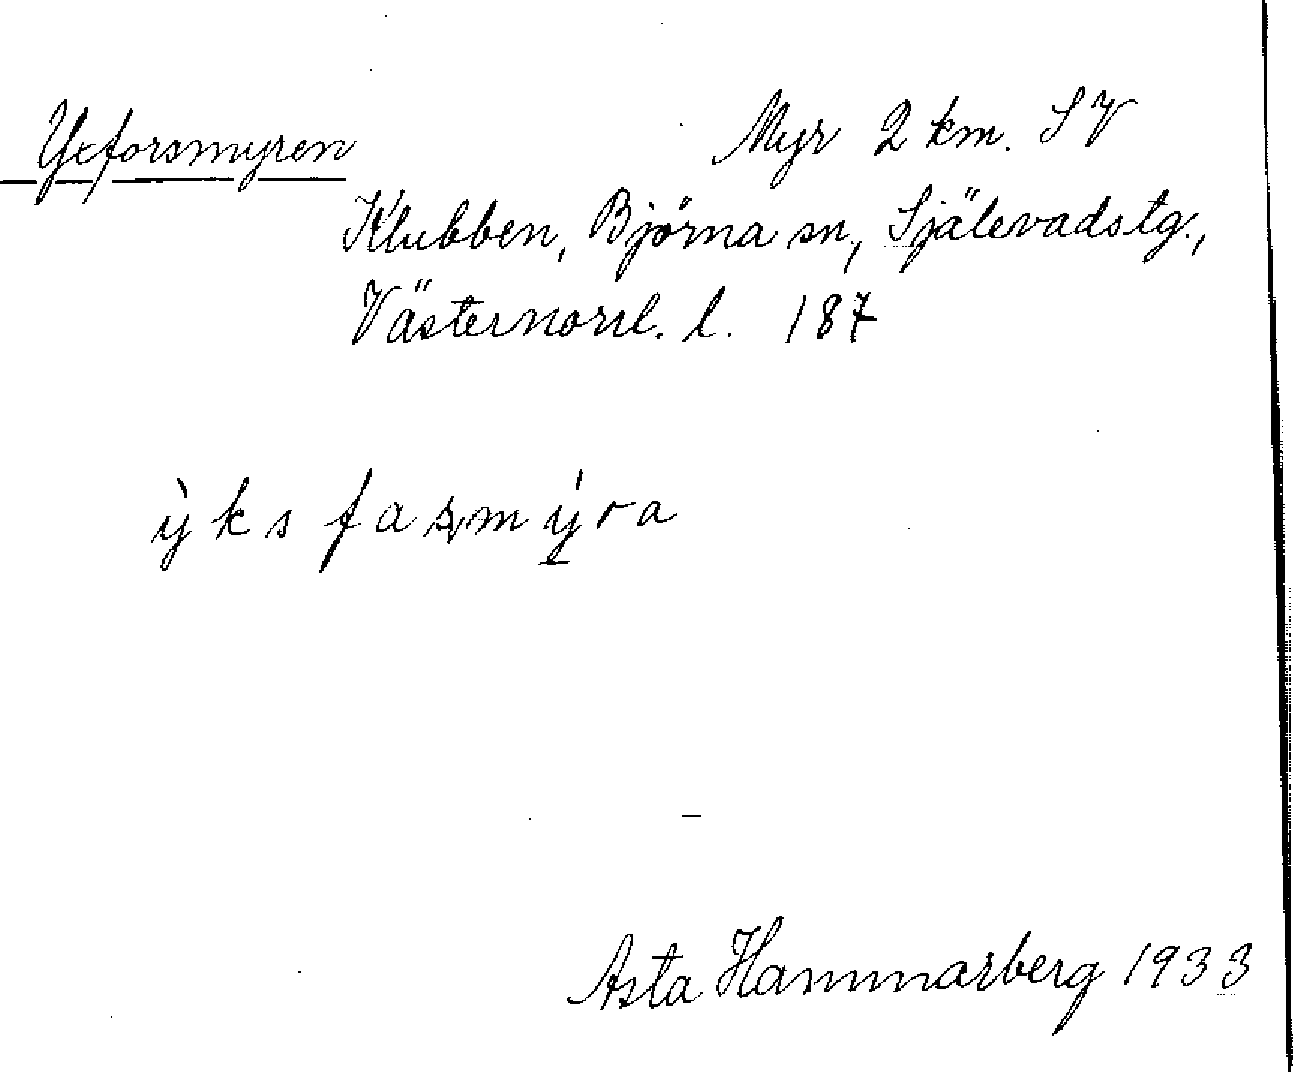 Yxforsmyren
Myr 2 km. SV
Klubben, Björna sn, Själevadstg.,
Västernorrl. l. 187
Asta Hammarberg 1933